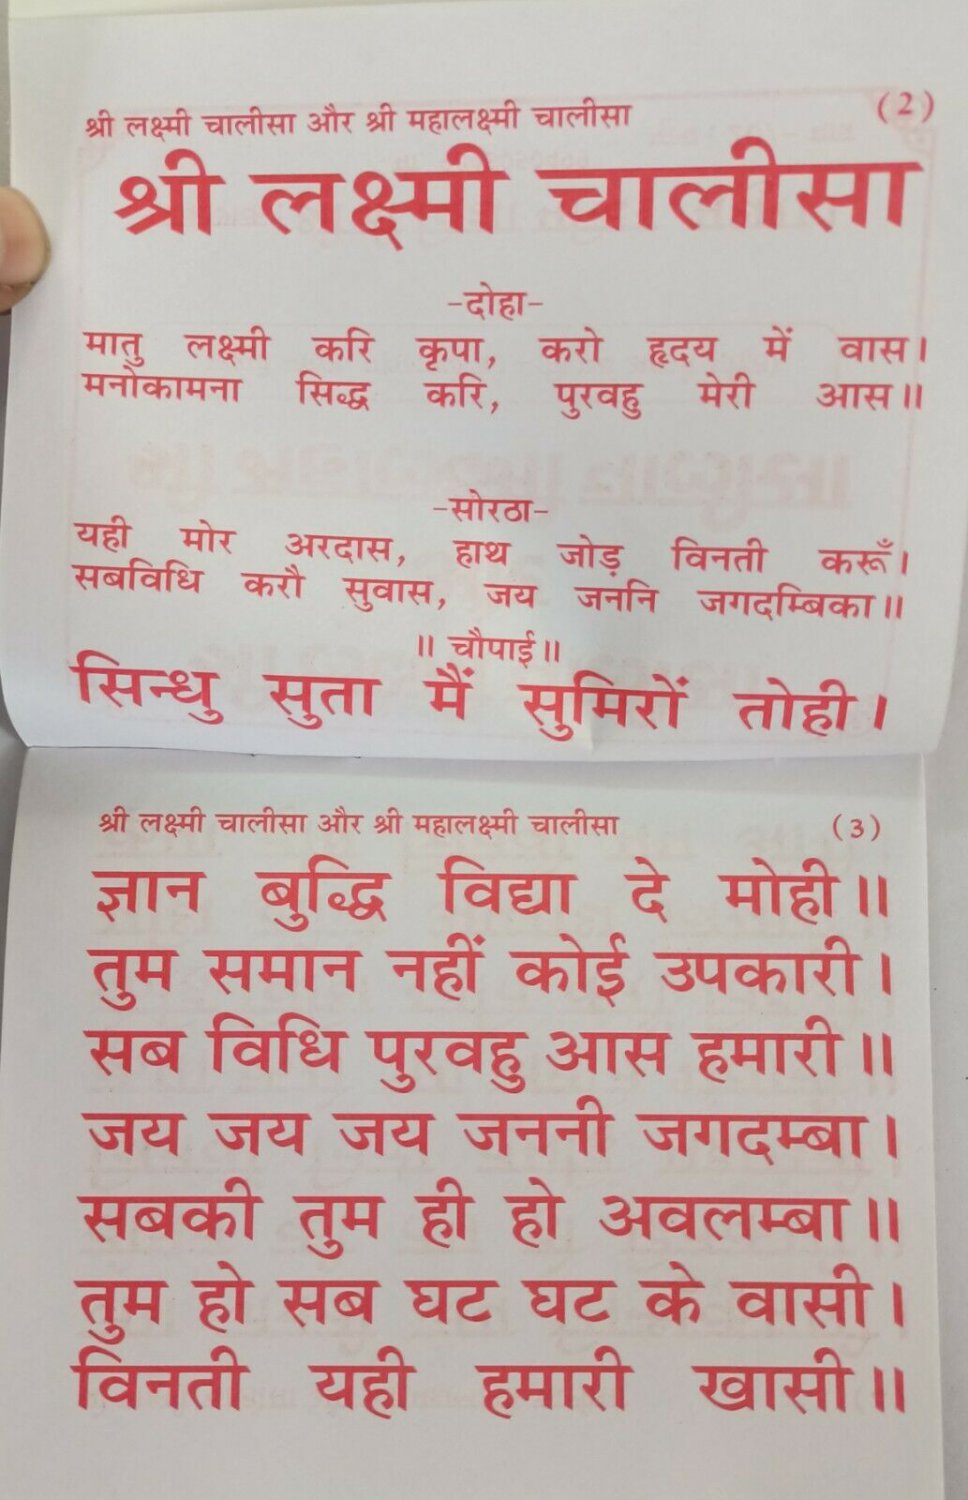 श्री लक्ष्मी चालीसा और श्री महालक्ष्मी चालीसा (2)
श्री लक्ष्मी चालीसा
-दोहा-
मातु लक्ष्मी करि कृपा, करो हृदय में वास।
मनोकामना सिद्ध करि, पुरवहु मेरी आस॥
-सोरठा-
यही मोर अरदास, हाथ जोड़ विनती करूँ।
सबविधि करौ सुवास, जय जननि जगदम्बिका॥
॥ चौपाई॥
सिन्धु सुता मैं सुमिरों तोही।
श्री लक्ष्मी चालीसा और श्री महालक्ष्मी चालीसा (3)
ज्ञान बुद्धि विद्या दे मोही॥
तुम समान नहीं कोई उपकारी।
सब विधि पुरवहु आस हमारी॥
जय जय जय जननी जगदम्बा।
सबकी तुम ही हो अवलम्बा॥
तुम हो सब घट घट के वासी।
विनती यही हमारी खासी॥